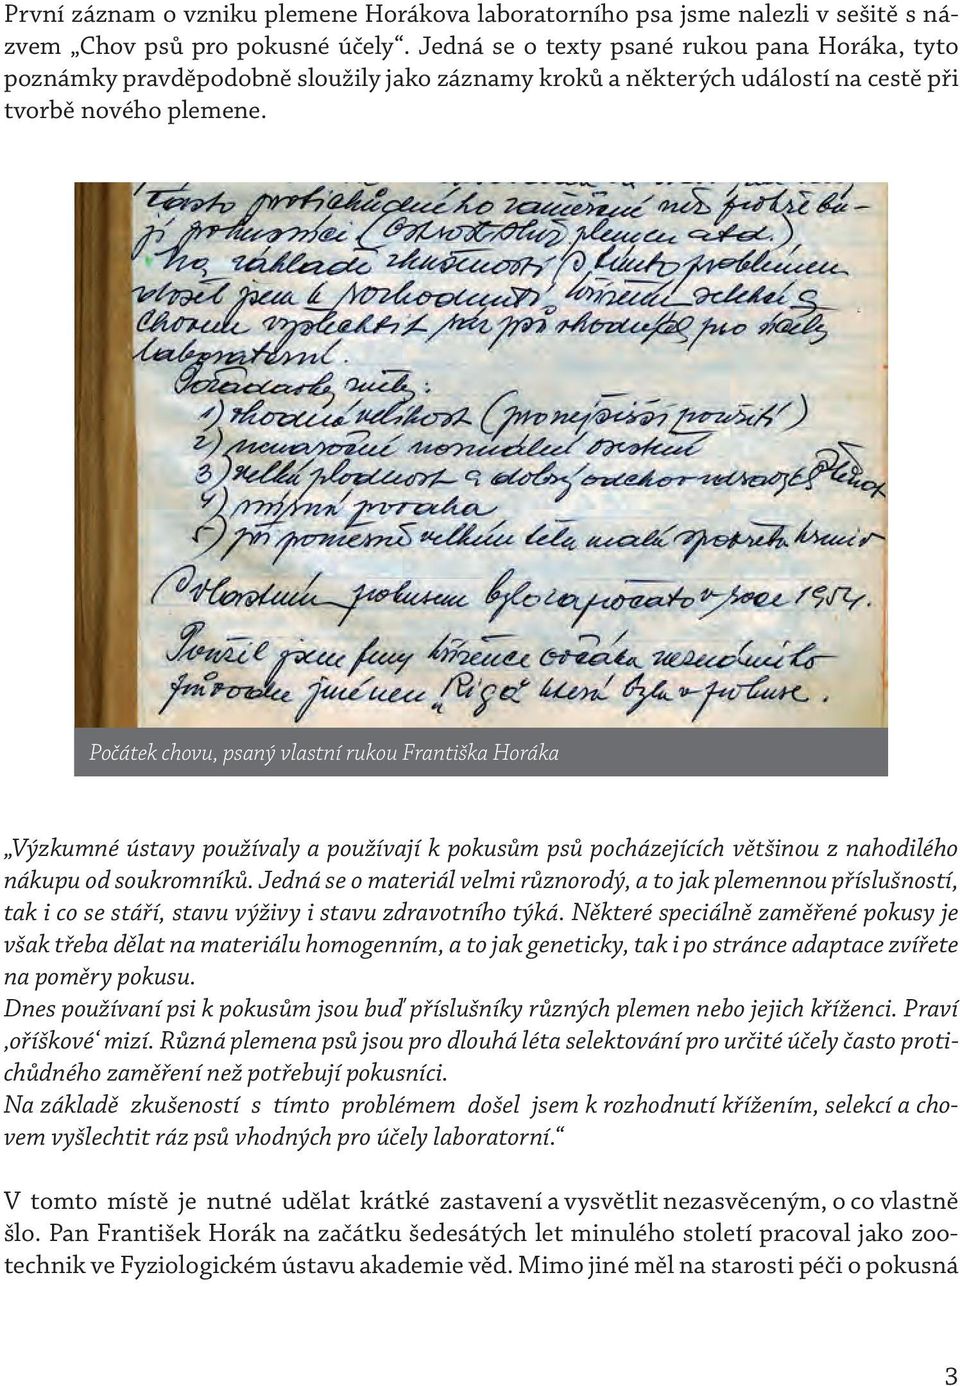 První záznam o vzniku plemene Horákova laboratorního psa jsme nalezli v sešitě s ná-
zvem „Chov psů pro pokusné účely“. Jedná se o texty psané rukou pana Horáka, tyto
poznámky pravděpodobně sloužily jako záznamy kroků a některých událostí na cestě při
tvorbě nového plemene.
často protichůdného zaměření než potřebu-
jí pokusníci (Ostrost služ. plemen atd.)
Na základě zkušeností s tímto problémem
došel jsem k rozhodnutí křížením selekcí a
chovem vyšlechtit ráz psů vhodných pro účely
laboratorní.
Požadavky měly:
1) vhodná velikost (pro nejširší použití)
2) nenáročné normální osrstění
3) velká plodnost a dobrý odchov zdravých štěňat
4) mírná povaha
5) při poměrně velkém tělu malá spotřeba krmiv
S vlastním pokusem bylo započato v roce 1954.
Použil jsem feny křížence ovčáka neznámého
původu jménem „Riga“ která byla v pokuse.
Počátek chovu, psaný vlastní rukou Františka Horáka
„Výzkumné ústavy používaly a používají k pokusům psů pocházejících většinou z nahodilého
nákupu od soukromníků. Jedná se o materiál velmi různorodý, a to jak plemennou příslušností,
tak i co se stáří, stavu výživy i stavu zdravotního týká. Některé speciálně zaměřené pokusy je
však třeba dělat na materiálu homogenním, a to jak geneticky, tak i po stránce adaptace zvířete
na poměry pokusu.
Dnes používaní psi k pokusům jsou buď příslušníky různých plemen nebo jejich kříženci. Praví
‚oříškové‘ mizí. Různá plemena psů jsou pro dlouhá léta selektování pro určité účely často proti-
chůdného zaměření než potřebují pokusníci.
Na základě zkušeností s tímto problémem došel jsem k rozhodnutí křížením, selekcí a cho-
vem vyšlechtit ráz psů vhodných pro účely laboratorní.“
V tomto místě je nutné udělat krátké zastavení a vysvětlit nezasvěceným, o co vlastně
šlo. Pan František Horák na začátku šedesátých let minulého století pracoval jako zoo-
technik ve Fyziologickém ústavu akademie věd. Mimo jiné měl na starosti péči o pokusná
3